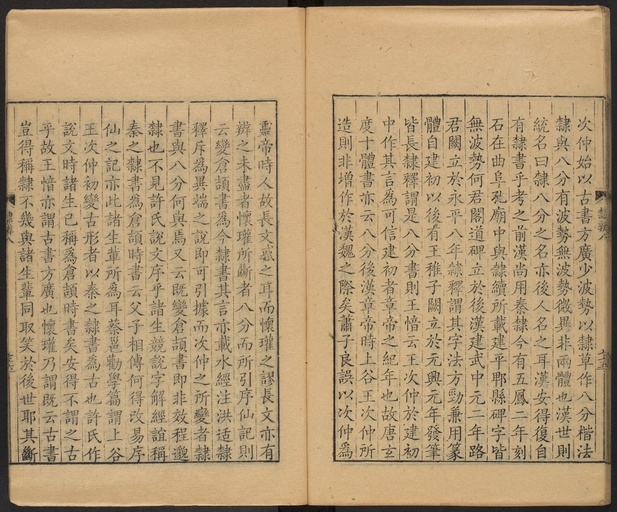 次仲始以古書方廣少波勢以隸草作八分楷法
隸與八分有波勢無波勢微異非兩體也漢世則
統名曰隸八分之名亦後人名之耳漢安得復自
有隸書乎考之前漢尚用秦隸今有五鳳二年刻
石在曲阜孔廟中與隸續所載建平郫縣碑字皆
無波勢何君閣道碑立於後漢建武中元二年路
君闕立於永平八年隸釋謂其字法方勁兼用篆
體自建初以後有王稚子闕立於元興元年發筆
皆長隸釋謂是八分書則王愔云王次仲於建初
中作其言為可信建初者章帝之紀年也故唐玄
度十體書亦云八分後漢章帝時上谷王次仲所
造則非增作於漢魏之際矣蕭子良誤以次仲為
隸辨八
靈帝時人故長文惑之耳而懷瓘之謬長文亦有
辨之未盡者懷瓘所斷者八分而所引序仙記則
云變倉頡書為今隸書其言亦載水經注洪造隸
釋斥為異端之說即可引據而次仲之所變者隸
書與八分何與焉又云既變倉頡書即非效程邈
隸也不見許氏說文序乎諸生競說字解經誼稱
秦之隸書為倉頡時書云父子相傳何得改易序
仙之記亦此諸生輩所為耳蔡邕勸學篇謂上谷
王次仲初變古形者以秦之隸書為古也許氏作
說文時諸生已稱為倉頡時書矣安得不謂之古
乎故王愔亦謂古書方廣也懷瓘乃謂既云古書
豈得稱隸不幾與諸生輩同取笑於後世耶其斷